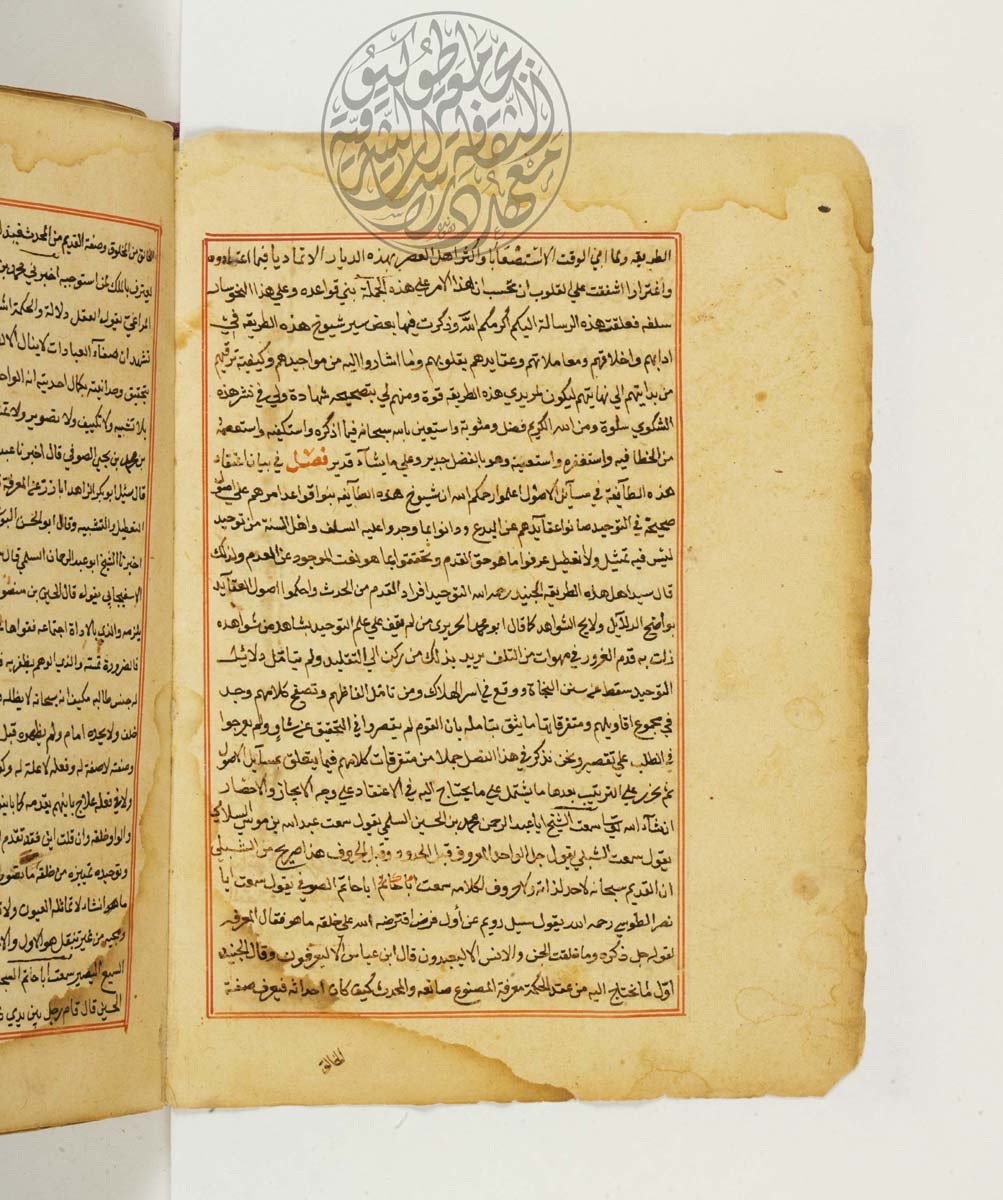 الطريقة ولما ابي الوقت الا استصعابا واكثر اهل العصر بهذه الديار الا تماديا فيما اعتادوه
واغترارا اشفقت علي القلوب ان تحسب ان هذا الامر علي هذه الجملة بني قواعده وعلي هذا النحو سار
سلفه فعلقت هذه الرسالة اليكم اكرمكم الله وذكرت فيها بعض سير شيوخ هذه الطريقة في
ادابهم واخلاقهم ومعاملاتهم وعقايدهم بقلوبهم وما اشاروا اليه من مواجيدهم وكيفية ترقيهم
من بدايتهم الي نهايتهم ليكون لمريدي هذه الطريقة قوة ومنهم لي بتصحيحه شهادة ولي في نشر هذه
الشكوي سلوة ومن الله الكريم فضل ومثوبة واستعين بالله سبحانه فيما اذكره واستكفيه واستعصمه
من الخطا فيه واستغفره واستعينه وهو بالفضل جدير وعلي ما يشآء قدير فصل في بيان اعتقاد
هذه الطآيفة في مسآيل الاصول اعلموا رحمكم الله ان شيوخ هذه الطآيفه بنوا قواعد امرهم علي اصول
صحيحة في التوحيد صانوا عقآيدهم عن البدع ودانوا بما وجدوا عليه السلف واهل السنة من توحيد
ليس فيه تمثيل ولا تعطيل عرفوا ما هو حق القدم وتحققوا بما هو نعت الموجود عن العدم ولذلك
قال سيد اهل هذه الطريقه الجنيد رحمه الله التوحيد افراد القدم من الحدث واحكموا اصول العقآيد
بواضح الدلآيل ولايح الشواهد كما قال ابو محمد الحريري من لم يقف علي علم التوحيد بشاهد من شواهده
زلت به قدم الغرور في مهوات من التلف يريد بذلك من ركن الي التقليد ولم يتامل دلايل
التوحيد سقط عن سنن النجاة ووقع في اسر الهلاك ومن تامل الفاظهم وتصفح كلامهم وجد
في مجموع اقاويلهم ومتفرقاتها ما يثق بتامله بان القوم لم يقصروا في التحقيق عن شاو ولم يعرجوا
في الطلب علي تقصير ونحن نذكر في هذا الفصل جملا من متفرقات كلامهم فيما يتعلق بمسآيل الاصول
ثم نحرر علي الترتيب بعدها ما يشتمل علي ما يحتاج اليه في الاعتقاد علي وجه الايجاز والاختصار
انشآء الله تعالي سمعت الشيخ ابا عبد الرحمن محمد بن الحسين السلمي يقول سمعت عبد الله بن موسي السلامي
يقول سمعت الشبلي يقول جل الواحد المعروف قبل الحدود وقبل الحروف هذا صريح من الشبلي
ان القديم سبحانه لا حد لذاته ولا حروف لكلامه سمعت ابا حاتم الصوفي يقول سمعت ابا
نصر الطوسي رحمه الله يقول سيل رويم عن أول فرض افترضه الله علي خلقه ما هو فقال المعرفه
لقوله جل ذكره وما خلقت الجن والانس الا ليعبدون قال ابن عباس الا ليعرفون وقال الجنيد
أول ما يحتاج اليه من عقد الحكمة معرفة المصنوع صانعه والمحدث كيف كان احداثه فيعرف صفة
الخالق
الخالق من المخلوق وصفة القديم من المحدث فيذل
ويعترف بالملك لمن استوجبه اخبرني محمد بن
المراغي يقول العقل دلالة والحكمة
تشهد ان صفآء العبادات لا ينال الا
بتحقيق وحدانيته بكمال احديته انه الواحد
بلا تشبيه ولا تكييف ولا تصوير ولا
بن محمد بن يحيي الصوفي قال اخبرنا عبد
قال سئل ابو بكر الزاهد عن المعرفة
التعطيل والتشبيه وقال ابو الحسن
اخبرنا الشيخ ابو عبد الرحمان السلمي قال
يقول قال الحسين بن منصور
يلزمه والذي بالاداة اجتماعه فقواها
فالضرورة تمسه والذي الوهم يظفر به
له جنس طالبه مكيف انه سبحانه لا يظله
خلف ولا يحده امام ولم يظهره قبل
وصفه لا صفة له وفعله لا علة له
والواو خلقه وان قلت اين فقد تقدم
وتوحيده تمييزه من خلقه ما تصور
ما هو انشاه لا تماقله العيون ولا
ومجيه من غير تنقل هو الاول والا
السميع البصير سمعت ابا حاتم
الحسين قال قام رجل بين يدي
معهد الثقافة والدراسات الشرقية
جامعة طوكيو